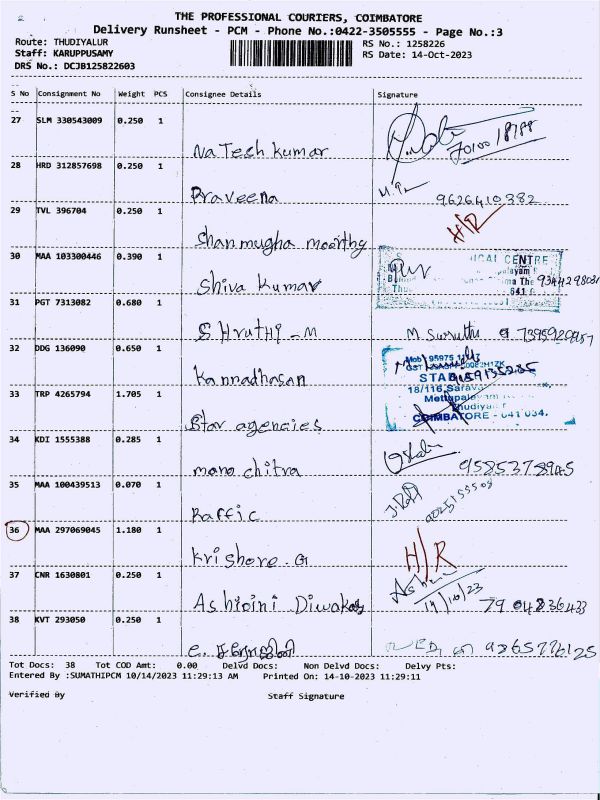 2
THE PROFESSIONAL COURIERS, COIMBATORE
Delivery Runsheet - PCM - Phone No.:0422-3505555 - Page No.:3
Route: THUDIYALUR RS No.: 1258226
Staff: KARUPPUSAMY RS Date: 14-Oct-2023
DRS No.: DCJB125822603
S No Consignment No Weight PCS Consignee Details Signature
27 SLM 330543009 0.250 1
Natesh kumar
28 HRD 312857698 0.250 1
Praveena 9626410382
29 TVL 396704 0.250 1 H/R
Shanmugha moorthy
30 MAA 103300446 0.390 1
Shiva Kumar
31 PGT 7313082 0.680 1
SHruTHi - M
32 DDG 136090 0.650 1
Kannadhasan
33 TRP 4265794 1.705 1
Star agencies
COIMBATORE - 641 034.
34 KDI 1555388 0.285 1
mano chitra
35 MAA 100439513 0.070 1
Raffic
36 MAA 297069045 1.180 1 H/R
Krishore. G
37 CNR 1630801 0.250 1
Ashwini Diwakar 14/10/23 7904836433
38 KVT 293050 0.250 1
Tot Docs: 38 Tot COD Amt: 0.00 Delvd Docs: Non Delvd Docs: Delvy Pts:
Entered By :SUMATHIPCM 10/14/2023 11:29:13 AM Printed On: 14-10-2023 11:29:11
Verified By Staff Signature